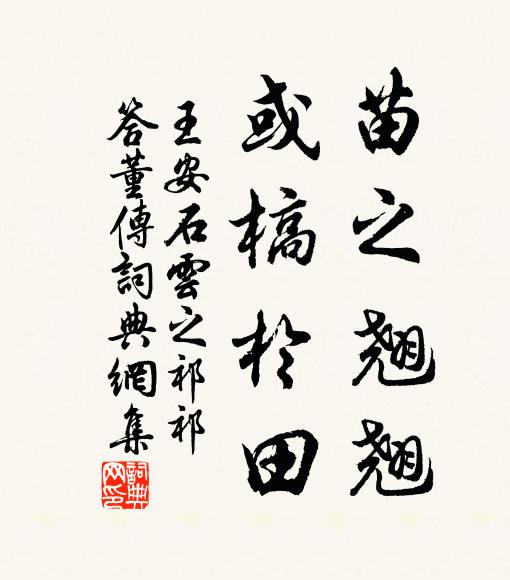 苗之翹翹
或槁於田
王安石雲之祁祁
答董傳詞典網集
詞典網印